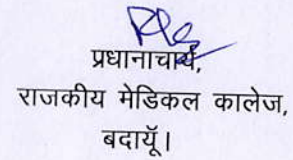 प्रधानाचार्य,
राजकीय मेडिकल कालेज,
बदायूँ।